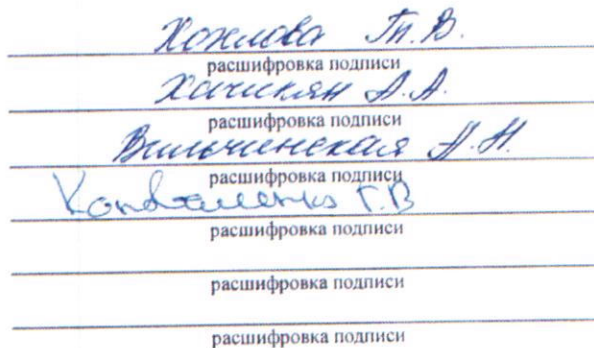 Хохлова Т.В.
расшифровка подписи
Хачикян А.А.
расшифровка подписи
Вильчинская А.Н.
расшифровка подписи
Коноваленко Г.В
расшифровка подписи
расшифровка подписи
расшифровка подписи